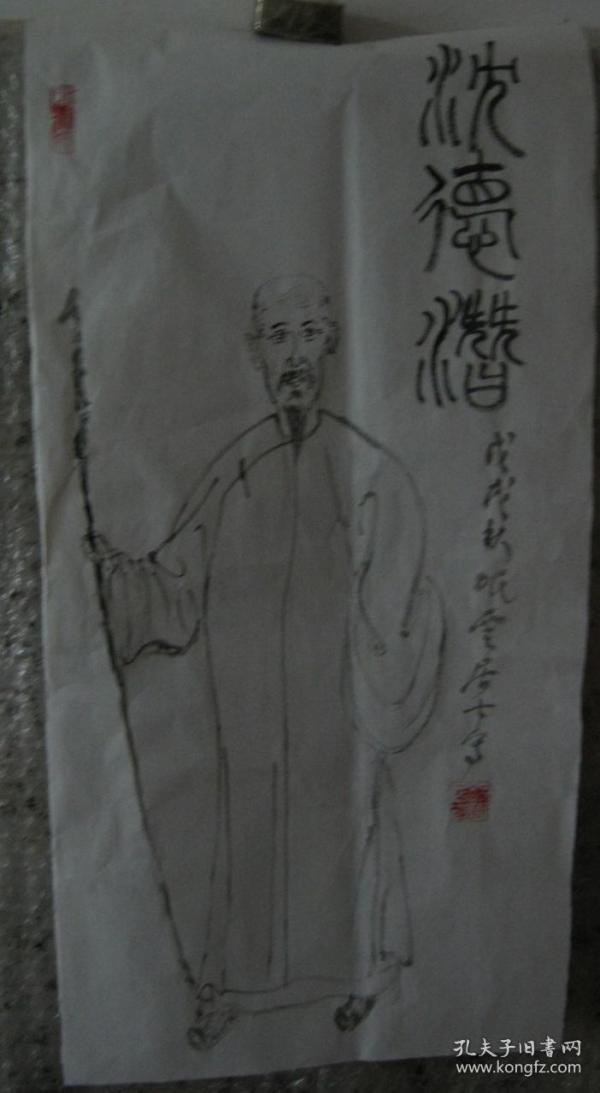 沈德潜
戊戌秋晚雲居士写
孔夫子旧書网
www.kongfz.com